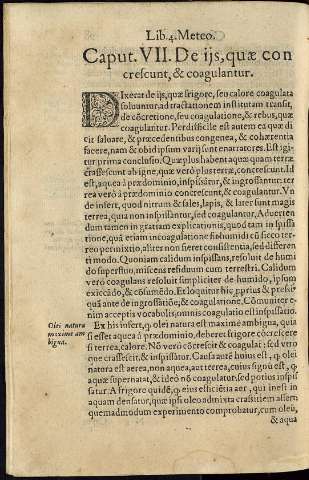 Lib. 4. Meteo.
Caput. VII. De ijs, quæ con
crescunt, & coagulantur.
DIxerat de ijs, quæ frigore, seu calore coagulata
soluuntur, ad tractationem institutam transit,
de cōcretione, seu coagulatione, & rebus, quæ
coagulantur. Perdifficile est autem ea quæ di
cit saluare, & præcedentibus congenea, & cohærentia
facere, nam & ob id ipsum varij sunt enarratores. Est igi
tur prima conclusio. Quæ plus habent aquæ quam terræ
crassescunt ab igne, quæ verò plus terræ, concrescunt. Id
est, aquea à prædominio, inspissātur, & ingrossantur. ter
rea verò à prædominio concrescunt, & coagulantur. Vn
de infert, quod nitrum & sales, lapis, & later sunt magis
terrea, quia non inspissantur, sed coagulantur. Aduerten
dum tamen in gratiam explicationis, quod tam in spissa
tione, quā etiam in coagulatione fit humidi cū sicco ter-
reo permixtio, aliter non fieret consistentia, sed differen
ti modo. Quoniam calidum inspissans, resoluit de humi
do superfluo, miscens residuum cum terrestri. Calidum
vero coagulans resoluit simpliciter de humido, ipsum
exiccādo, & cōsumēdo. Et loquitur hic proprius & presiu'
quā ante de ingrossatiōe, & coagulatione. Cōmuniter e-
nim acceptis vocabulis, omnis coagulatio est inspissatio.
Olei natura
maxime am
bigua.
Ex his infert, q. olei natura est maxime ambigua, quia
si esset aquea à prædominio, deberet frigore cōcrescere
si terrea, calore. Nō verò cōcrescit & coagulat: sed vero
que crassescit, & inspissatur. Causā autē huius est, q. olei
natura est aerea, non aquea, aut terrea, cuius signū est, q.
aquæ supernatat, & ideo nō coagulatur, sed potius inspis
satur. A frigore quidē, q. eius efficiētia aer, qui inest in
aquam densatur, quæ ipsi oleo admixta crassitiem affert
quemadmodum experimento comprobatur, cum oleū,
& aqua